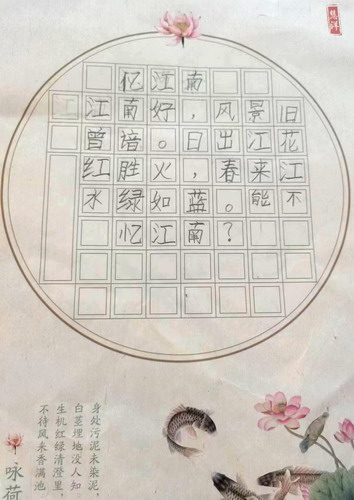 亿江南
江南好，风景旧
曾谙。日出江花
红胜火，春来江
水绿如蓝。能不
忆江南？
身处污泥未染泥，
白茎埋地没人知
生机红绿清澄里，
不待风来香满池
咏荷